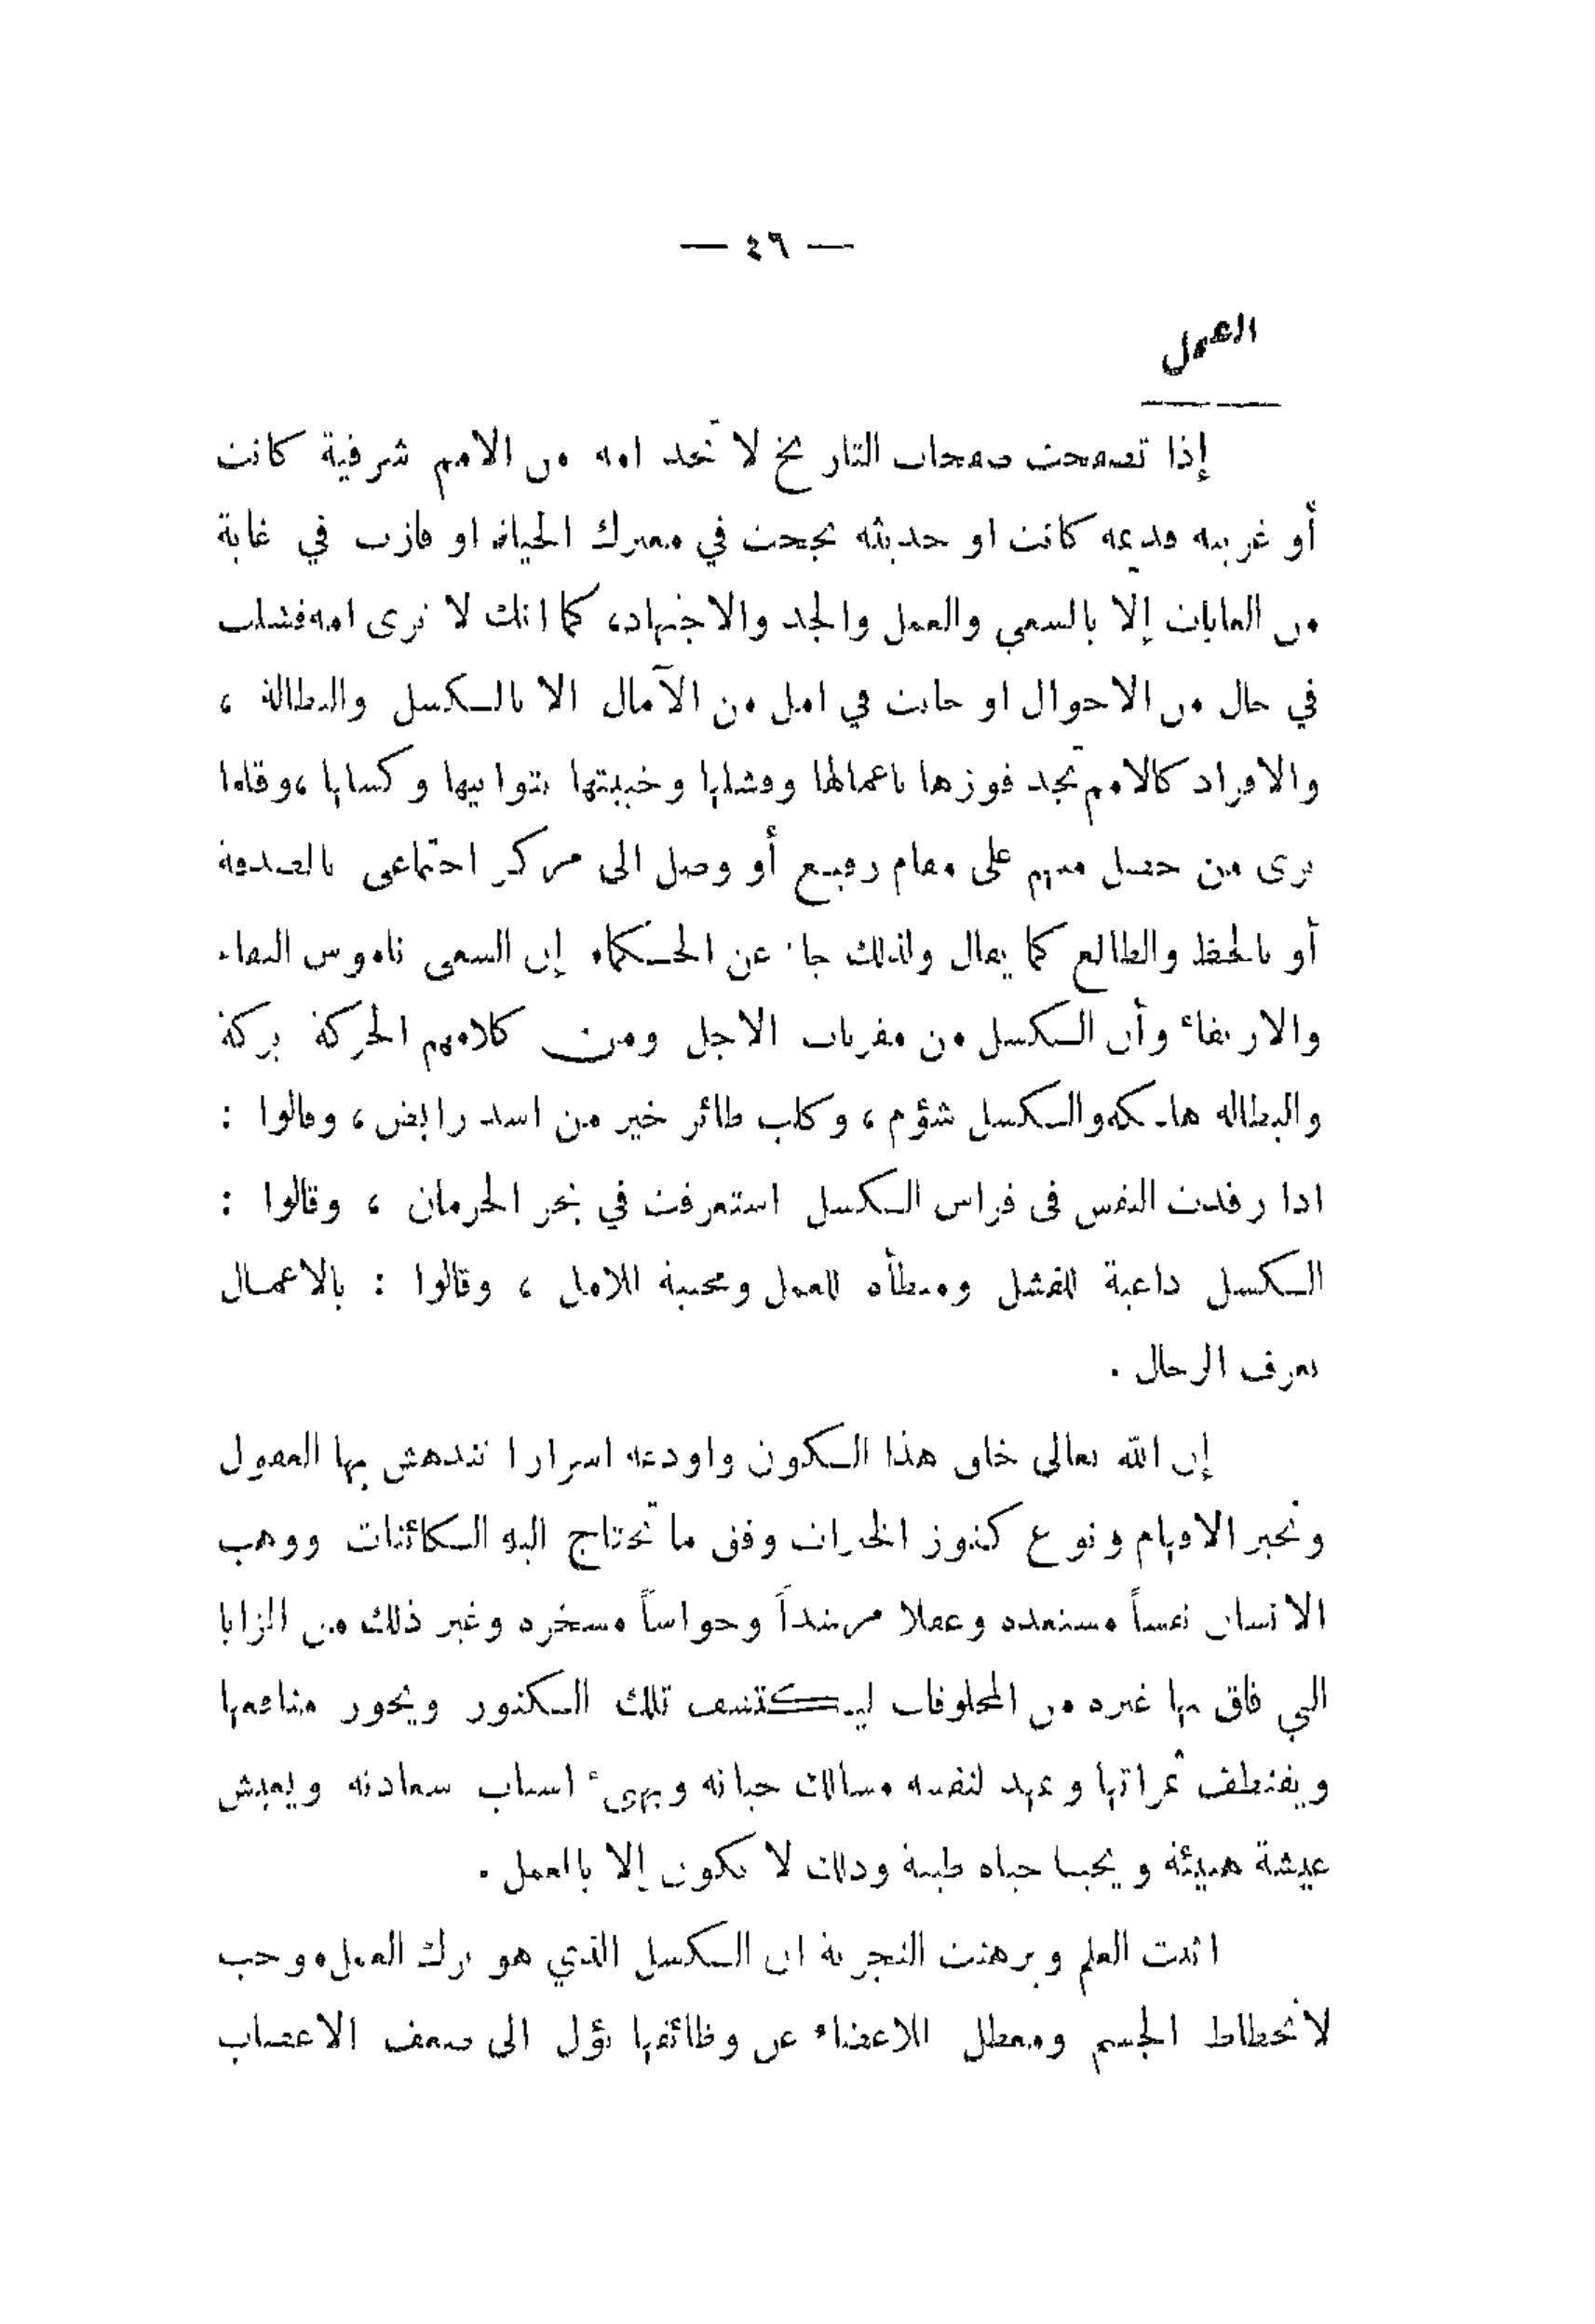 — ٤٦ —
العمل
إذا تصفحت صفحات التاريخ لا تجد امة من الامم شرقية كانت
أو غربية قديمة كانت او حديثة نجحت في معترك الحياة او فازت في غاية
من الغايات إلا بالسعي والعمل والجد والاجتهاد، كما انك لا ترى امة فشلت
في حال من الاحوال او خابت في امل من الآمال الا بالكسل والبطالة ،
والافراد كالامم تجد فوزها باعمالها وفشلها وخيبتها بتوانيها وكسلها ، وقلما
ترى من حصل منهم على مقام رفيع أو وصل الى مركز اجتماعى بالصدفة
أو بالحظ والطالع كما يقال ولذلك جاء عن الحكماء إن السعى ناموس البقاء
والارتقاء وأن الكسل من مقربات الاجل ومن كلامهم الحركة بركة
والبطالة هلكة والكسل شؤم ، وكلب طائر خير من اسد رابض ، وقالوا :
اذا رقدت النفس فى فراش الكسل استغرقت في بحر الحرمان ، وقالوا :
الكسل داعية للفشل ومبطأة للعمل ومخيبة للامل ، وقالوا : بالاعمال
تعرف الرجال .
إن الله تعالى خلق هذا الكون واودعه اسرارا تندهش بها العقول
وتحير الافهام ونوع كنوز الخيرات وفق ما تحتاج اليه الكائنات ووهب
الانسان نفساً مستعدة وعقلا مرشداً وحواساً مسخرة وغير ذلك من المزايا
التي فاق بها غيره من المخلوقات ليكتشف تلك الكنوز ويحوز منافعها
ويقتطف ثمراتها ويمهد لنفسه مسالك حياته ويهىء اسباب سعادته ويعيش
عيشة هنيئة ويحيا حياة طيبة وذلك لا يكون إلا بالعمل .
اثبت العلم وبرهنت التجربة ان الكسل الذي هو ترك العمل موجب
لانحطاط الجسم ومعطل للاعضاء عن وظائفها يؤل الى ضعف الاعصاب